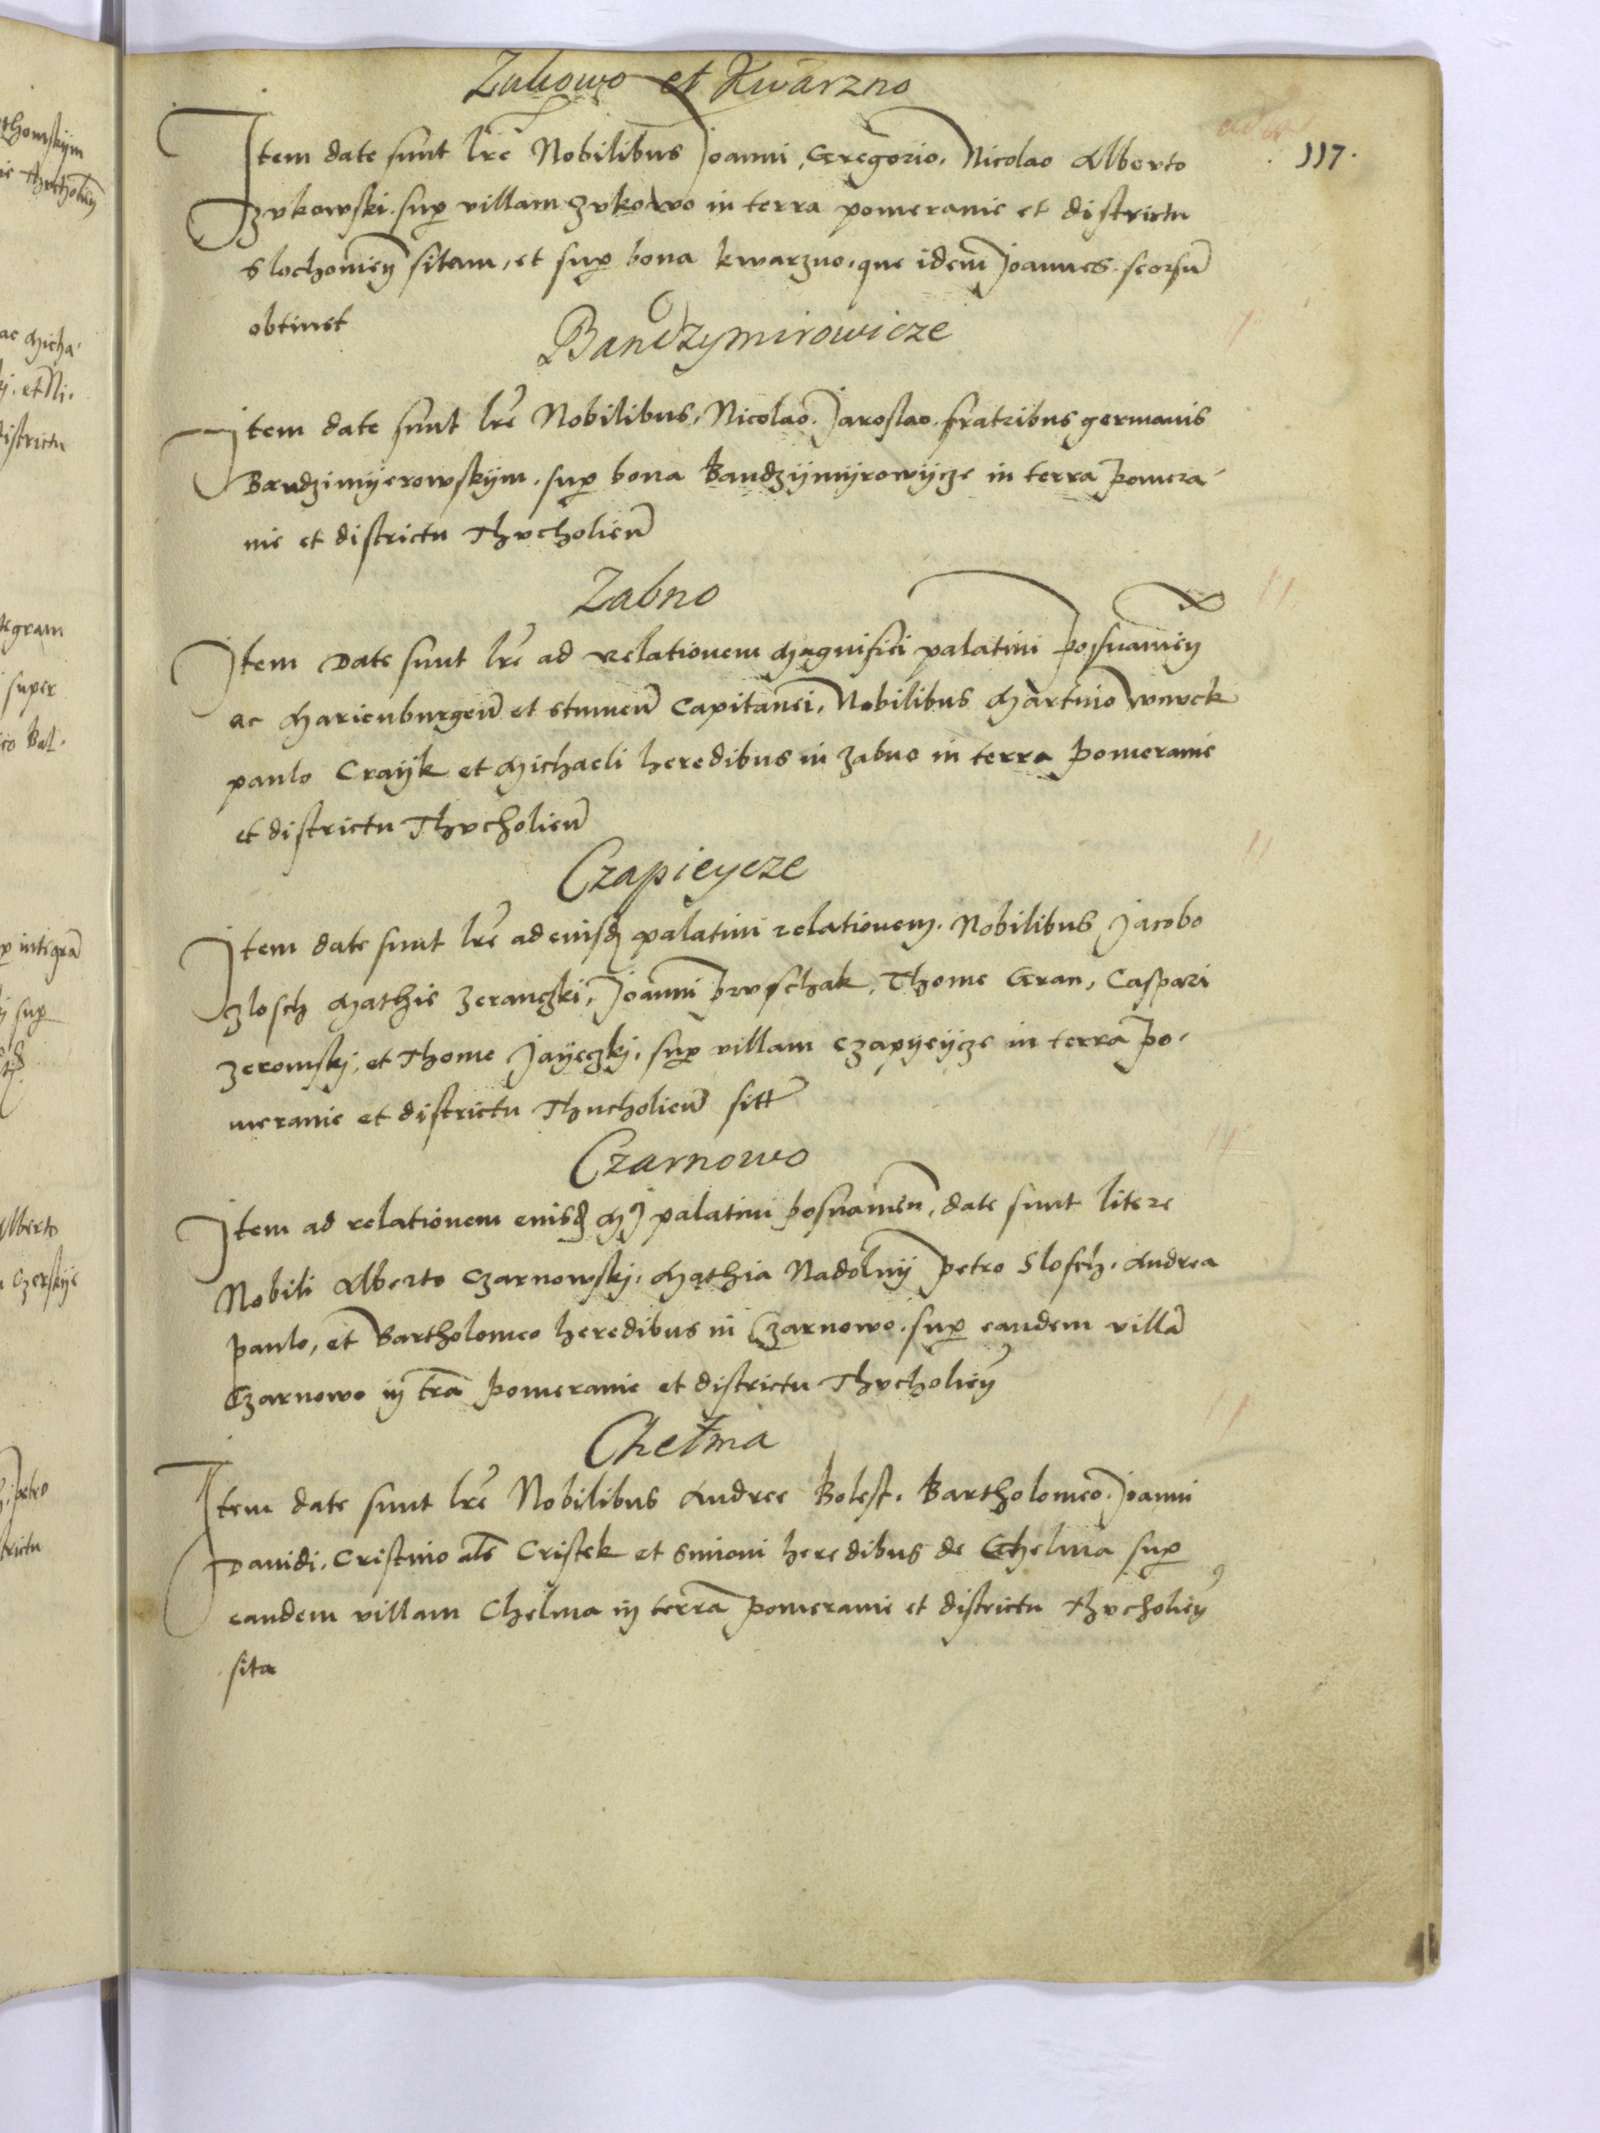 Zukowo et Kwarzno
117.
Item date sunt lre Nobilibus Joanni, Gregorio, Nicolao Alberto
Zukowski sup villam Zukowo in terra pomeranie et districtu
Slochomien sitam, et sup bona kwarzno, que idem Joannes seorsu
obtinet
Bandzymirowicze
Item date sunt lre Nobilibus, Nicolao, Jaroslao fratribus germanis
Bandzimyerowskym, sup bona Bandzymyrowycze in terra Pomera
nie et districtu Thucholien
Zabno
Item Date sunt lre ad relationem Magnifici palatini Posnanien
ac Marienburgen et Stumen Capitanei, Nobilibus Martino Wnuck
paulo Crayk et Michaeli heredibus in Zabno in terra Pomeranie
et districtu Thucholien
Czapieycze
Item date sunt lre ad eiusd palatini relationem. Nobilibus Jacobo
Zlosch Mathie Zeranczki, Joanni Pruschak, Thome Gran, Caspari
Zeromskj, et Thome Jayeczkj, sup villam Czapyeycze in terra Po-
meranie et districtu Thucholien sitt
Czarnowo
Item ad relationem eiusd M palatini Posnanien, date sunt litere
Nobili Alberto Czarnowskj, Mathia Nadolny Petro Slosch, Andrea
Paulo, et Bartholomeo heredibus in Czarnowo, sup eandem villa
Czarnowo in tra Pomeranie et districtu Thucholien
Chełma
Item date sunt lre Nobilibus Andree Bolest, Bartholomeo, Joanni
Dauidi, Cristino als Cristek et Simoni heredibus de Chelma sup
eandem villam Chelma in terra Pomeranie et districtu Thucholien
sita